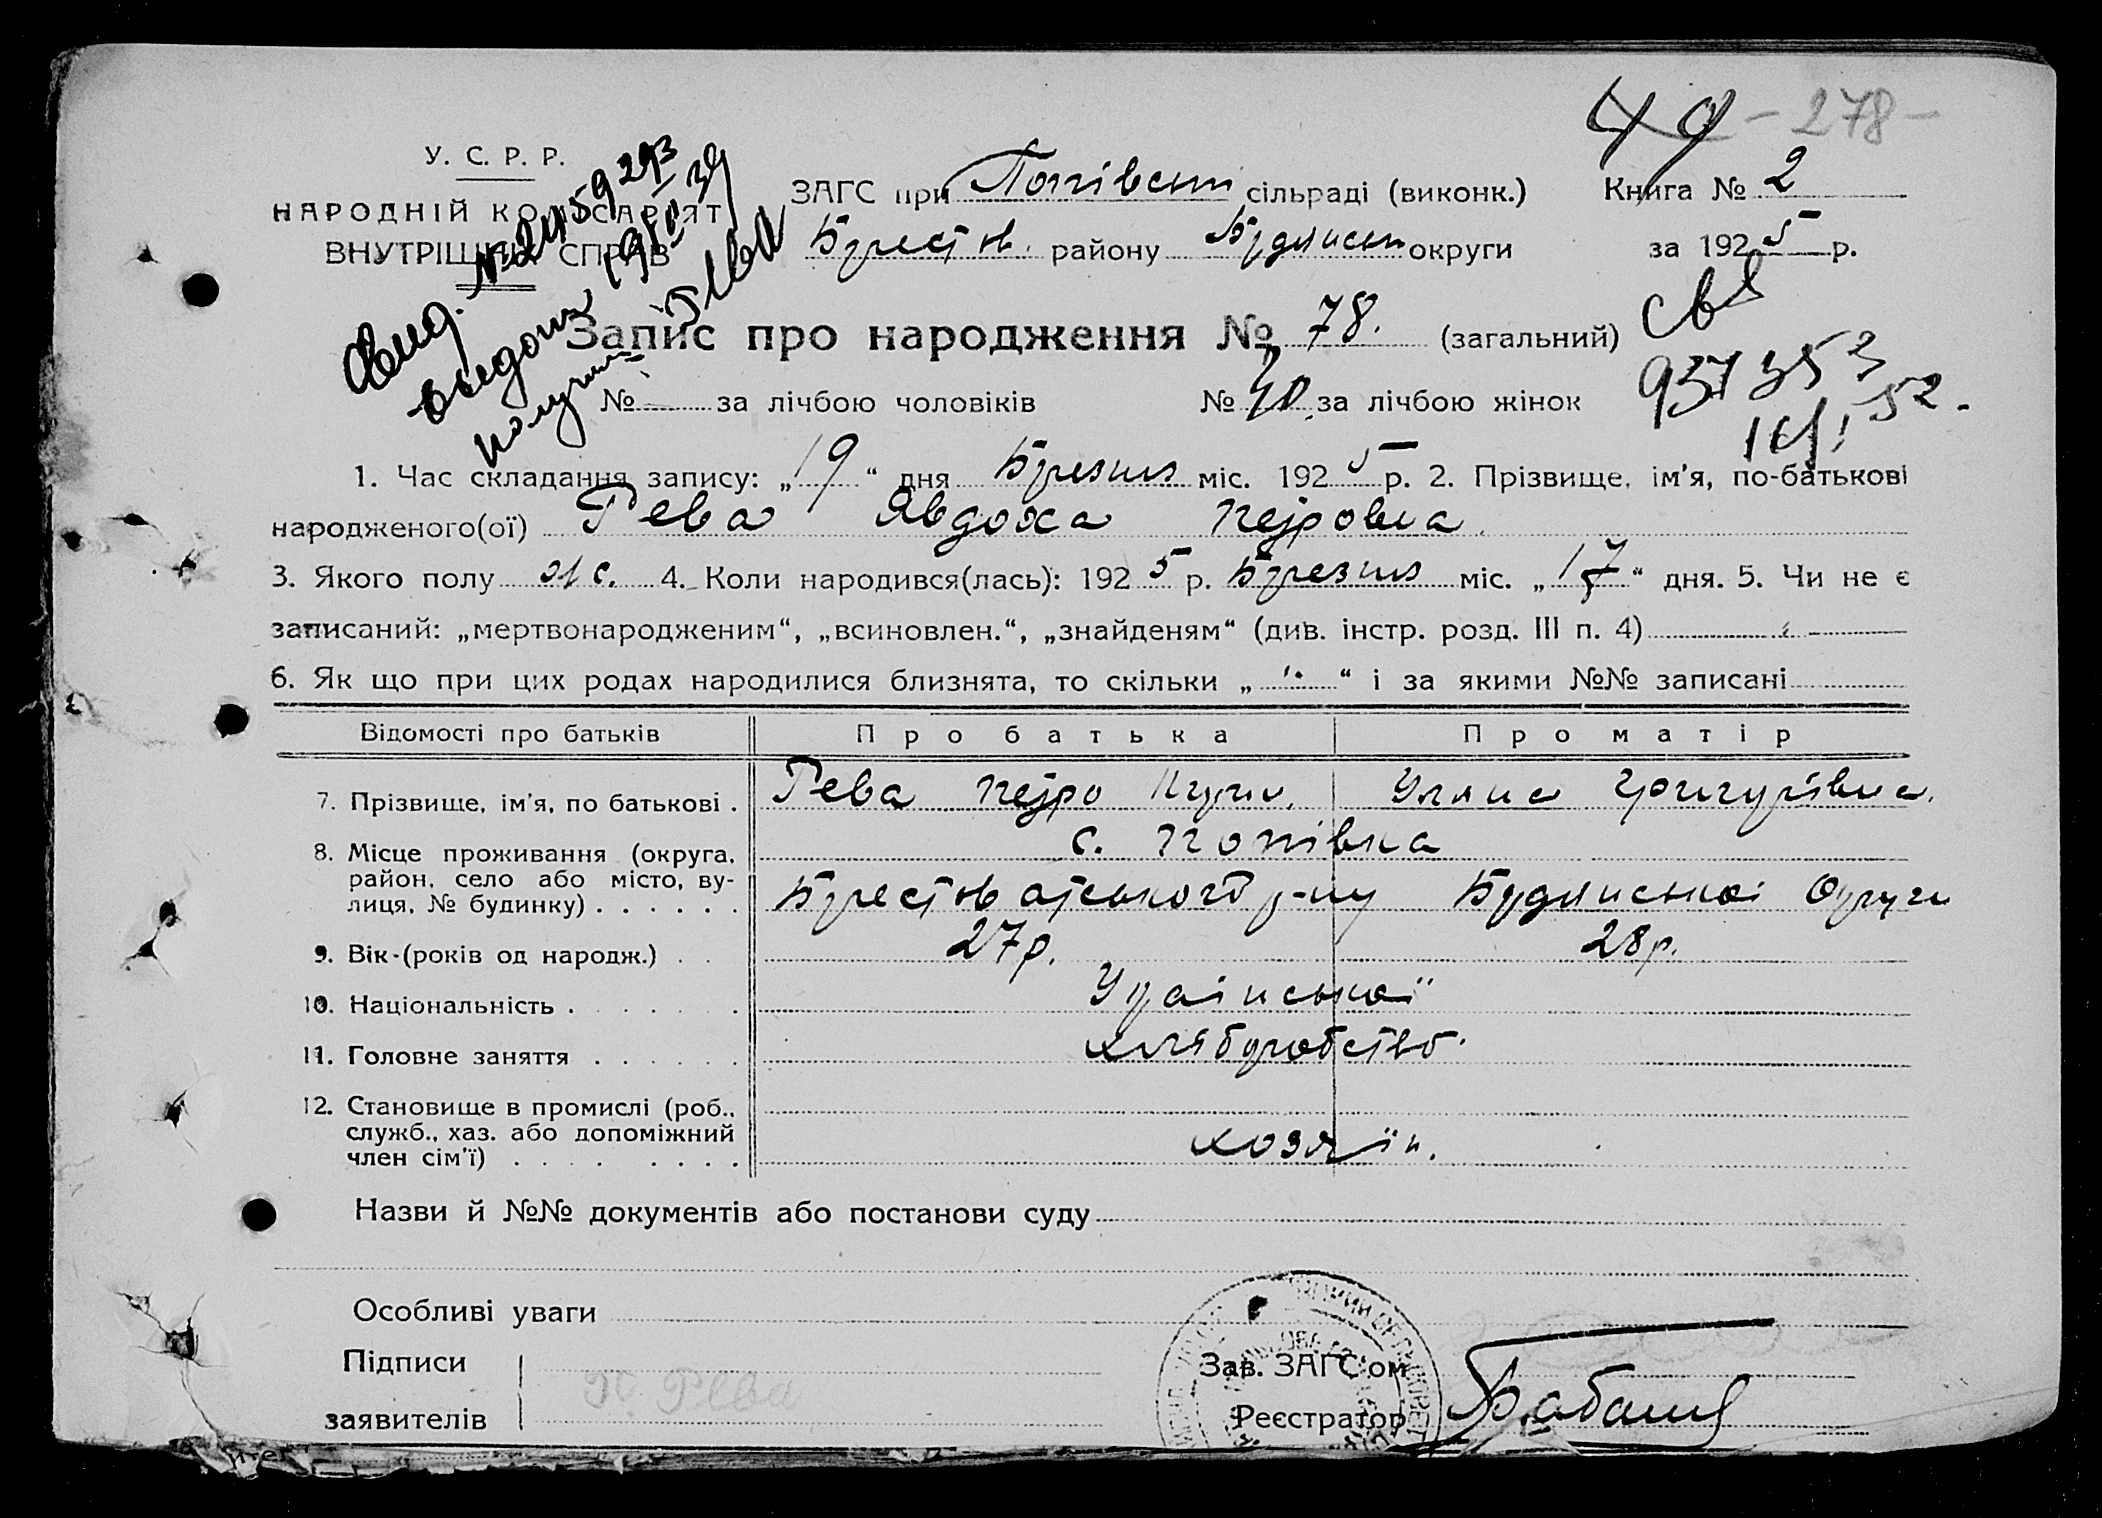 49 - 278 -
У. С. Р. Р.
НАРОДНІЙ КОМІСАРІЯТ
ВНУТРІШНІХ СПРАВ
ЗАГС при Попівській сільраді (виконк.) Книга № 2
Берестов. району Бердянськ округи за 1925 р.
Запис про народження № 78. (загальний)
№ за лічбою чоловіків № 40. за лічбою жінок
Свид. №
выдано
получила Рева
св
937353
52.
1. Час складання запису: „19“ дня Березня міс. 1925 р. 2. Прізвище, ім'я, по-батькові
народженого(ої) Рева Явдоха Петровна.
3. Якого полу ж. 4. Коли народився(лась): 1925 р. Березня міс. „17“ дня. 5. Чи не є
записаний: „мертвонародженим“, „всиновлен.“, „знайденям“ (див. інстр. розд. III п. 4)
6. Як що при цих родах народилися близнята, то скільки „ “ і за якими №№ записані
Відомості про батьків Про батька Про матір
7. Прізвище, ім'я, по батькові . Рева Петро Уляна Григорівна.
8. Місце проживання (округа, с. Попівка
район, село або місто, ву-
лиця, № будинку) . . . . . . Берестоватського р-ну Бердянськоі Округи
9. Вік-(років од народж.) . . 27 р. 28 р.
10. Національність . . . . . . Украінськоі
11. Головне заняття . . . . . . хліборобство.
12. Становище в промислі (роб.,
служб., хаз. або допоміжний
член сім'ї) . . . . . . . . хозяїн.
Назви й №№ документів або постанови суду
Особливі уваги
Підписи Зав. ЗАГС'ом
заявителів П. Рева Реєстратор